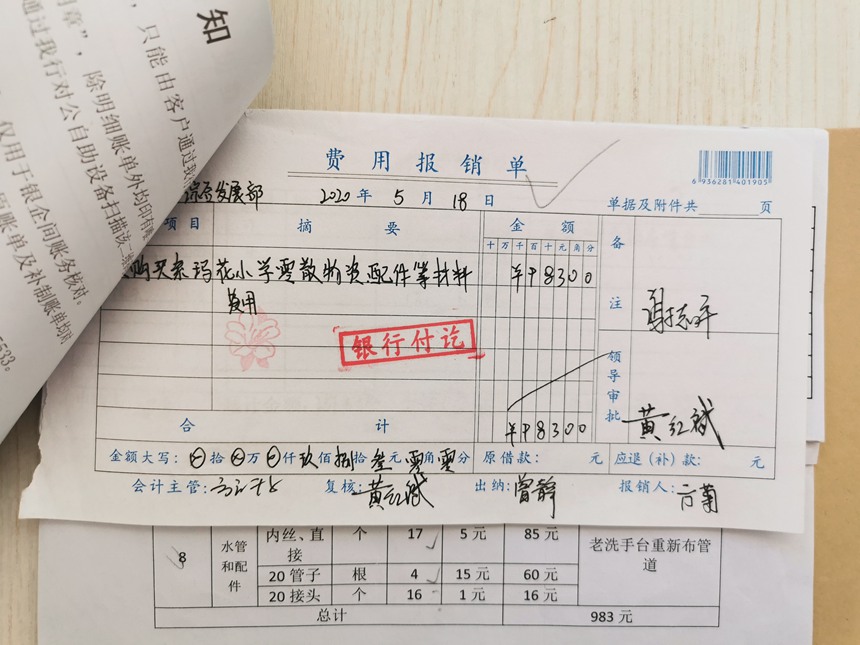 知
，只能由客户通过我
用章”，除明细账单外均印有
通过我行对公自助设备扫描该二维
仅用于银企间账务核对。
账单及补制账单均对
5533。
费用报销单
6 936281 401905
综合发展部 2020年5月18日 单据及附件共 页
项目 摘要 金额 备注
十万千百十元角分
购买索玛花小学零散物资配件等材料 ¥98300
费用
银行付讫
领导审批 黄红斌
合计 ¥98300
金额大写： 拾 万 仟玖佰捌拾叁元零角零分 原借款： 元 应退（补）款： 元
会计主管： 复核：黄红斌 出纳：曾静 报销人：方菊
8 水管和配件 内丝、直接 个 17 5元 85元 老洗手台重新布管道
20管子 根 4 15元 60元
20接头 个 16 1元 16元
总计 983元